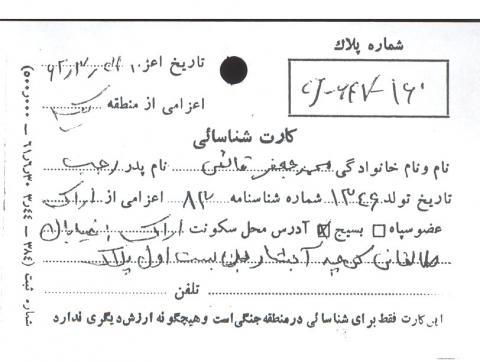 شماره پلاك
CJ-647-160
تاریخ اعزام ... ۶۲/۳/
اعزامی از منطقه
کارت شناسائی
نام و نام خانوادگی محمد جعفر قائمی نام پدر رجب
تاریخ تولد ۱۳۴۶ شماره شناسنامه ۸۳ اعزامی از اراک
عضو سپاه □ بسیج ☒ آدرس محل سکونت اراک خیابان
طالقانی کوچه آبشار بن بست اول پلاک
تلفن
این کارت فقط برای شناسائی در منطقه جنگی است و هیچگونه ارزش دیگری ندارد
شماره ثبت (۳۸۴ — ۳۴۴ — ۶۱/۶/۳۰ — ۵۰۰/۰۰۰)